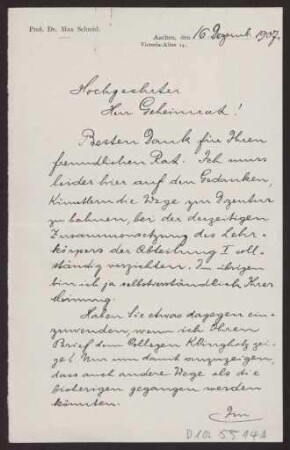 Prof. Dr. Max Schmid.
Aachen, den 16. Dezemb. 1907.
Victoria-Allee 14.
Hochgeehrter
Herr Geheimrat!
Besten Dank für Ihren
freundlichen Rat. Ich muss
leider hier auf den Gedanken,
Künstlern die Wege zur Dozentur
zu bahnen, bei der derzeitigen
Zusammensetzung des Lehr-
körpers der Abteilung I voll-
ständig verzichten. Im übrigen
bin ich ja selbstverständlich Ihrer
Meinung.
Haben Sie etwas dagegen ein-
zuwenden, wenn ich Ihren
Brief dem Collegen Klingholz zei-
ge? Nur um damit anzuzeigen,
dass auch andere Wege als die
bisherigen gegangen werden
könnten.